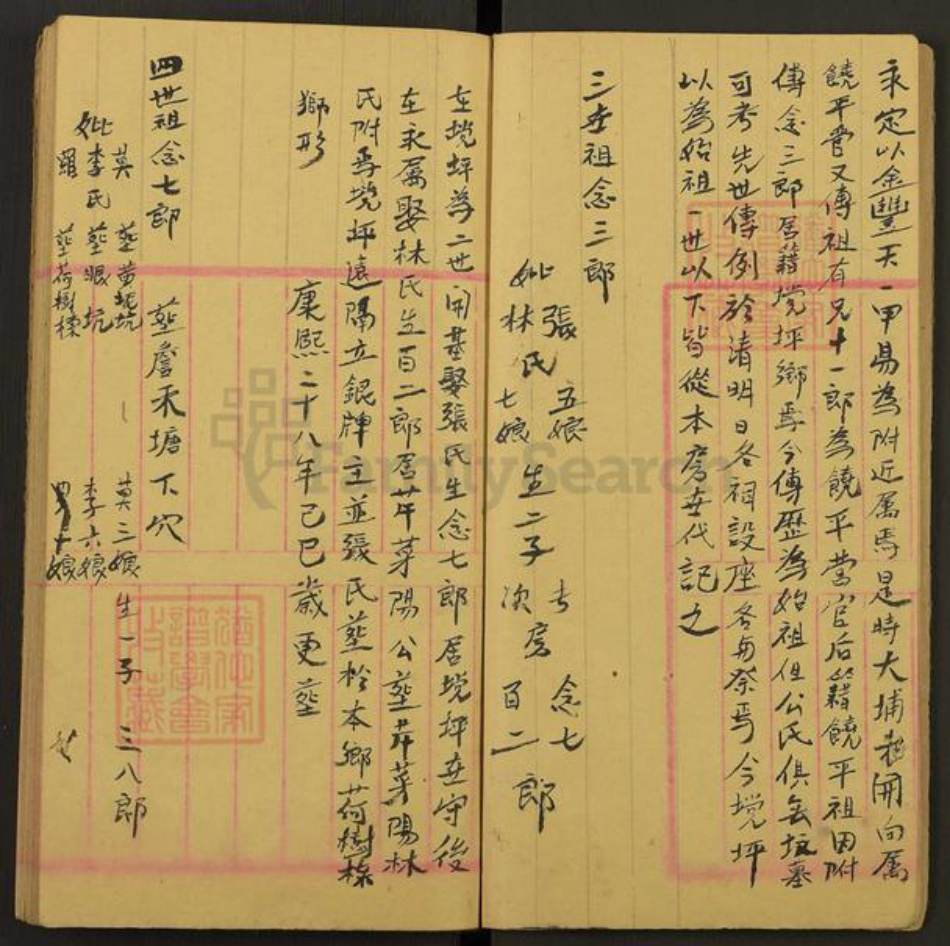 永定以金豐天一甲易為附近屬焉是時大埔越開向屬
饒平管又傳祖有兄十一郎為饒平營官后籍饒平祖因附
傳念三郎居籍塃坪鄉焉今傳歷為始祖但公氏俱無坟墓
可考先世傳例於清明日各祠設座各每祭焉今塃坪
以為始祖一世以下皆從本房世代記之
三世祖念三郎
妣張氏五娘 林氏七娘 生二子 長房念七 次房百二郎
在塃坪為二世開基娶張氏生念七郎居塃坪世守後
在永屬娶林氏生百二郎居苧菜陽公塟苧菜陽林
氏附焉塃坪遠隔立銀牌主並張氏塟於本鄉荷樹橑
獅形 康熙二十八年己巳歲更塟
四世祖念七郎 塟詹禾塘下穴
莫 塟黄坭坑 莫三娘
妣李氏 塟眼坑 李六娘 生一子 三八郎
羅 塟荷樹橑 十娘
FamilySearch